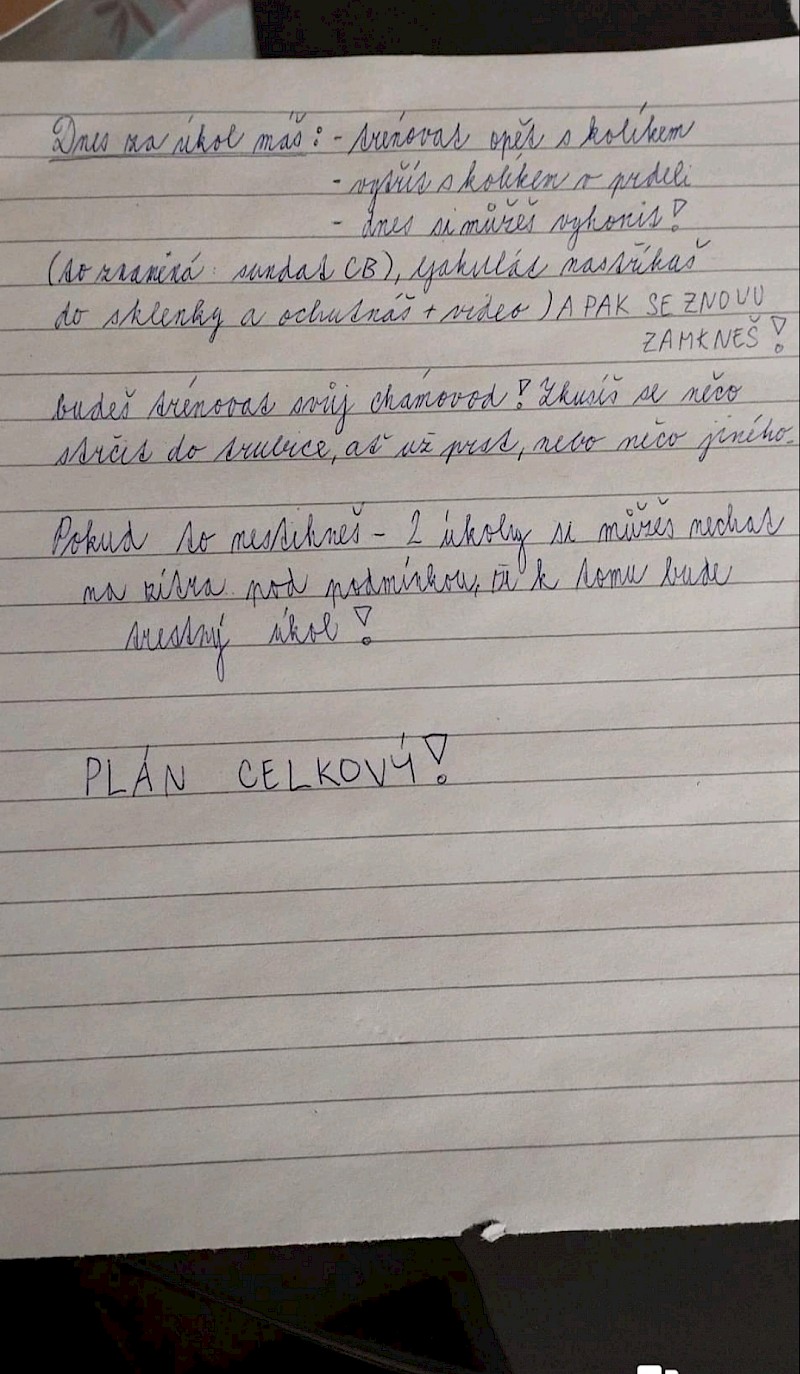 Dnes za úkol máš: - trénovat opět s kolíkem
- vytřít s kolíkem v prdeli
- dnes si můžeš vyhonit!
(to znamená: sundat CB), ejakulát nastříkáš
do sklenky a ochutnáš + video) A PAK SE ZNOVU
ZAMKNEŠ!
budeš trénovat svůj chámovod! Zkusíš se něčo
strčit do trubice, ať už prst, nebo něco jiného.
Pokud to nestihneš - 2 úkoly si můžeš nechat
na zítra pod podmínkou, že k tomu bude
trestný úkol!
PLÁN CELKOVÝ!